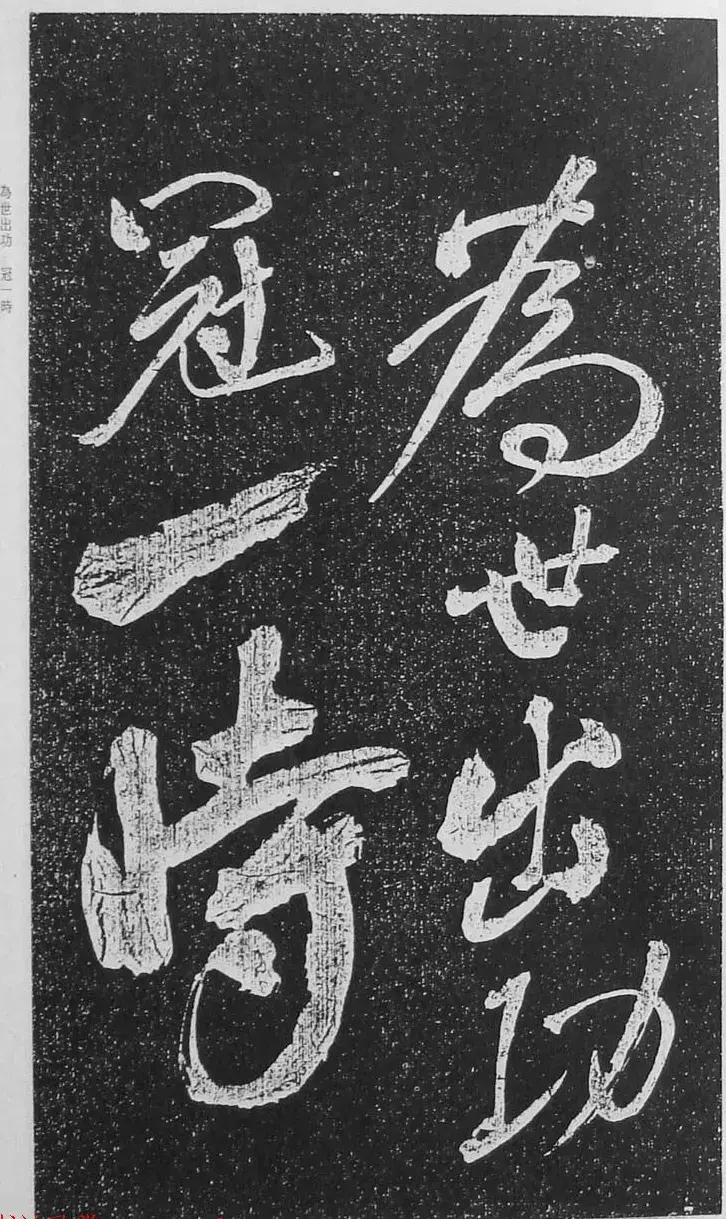 為世出功
冠一時
為世出功 冠一時